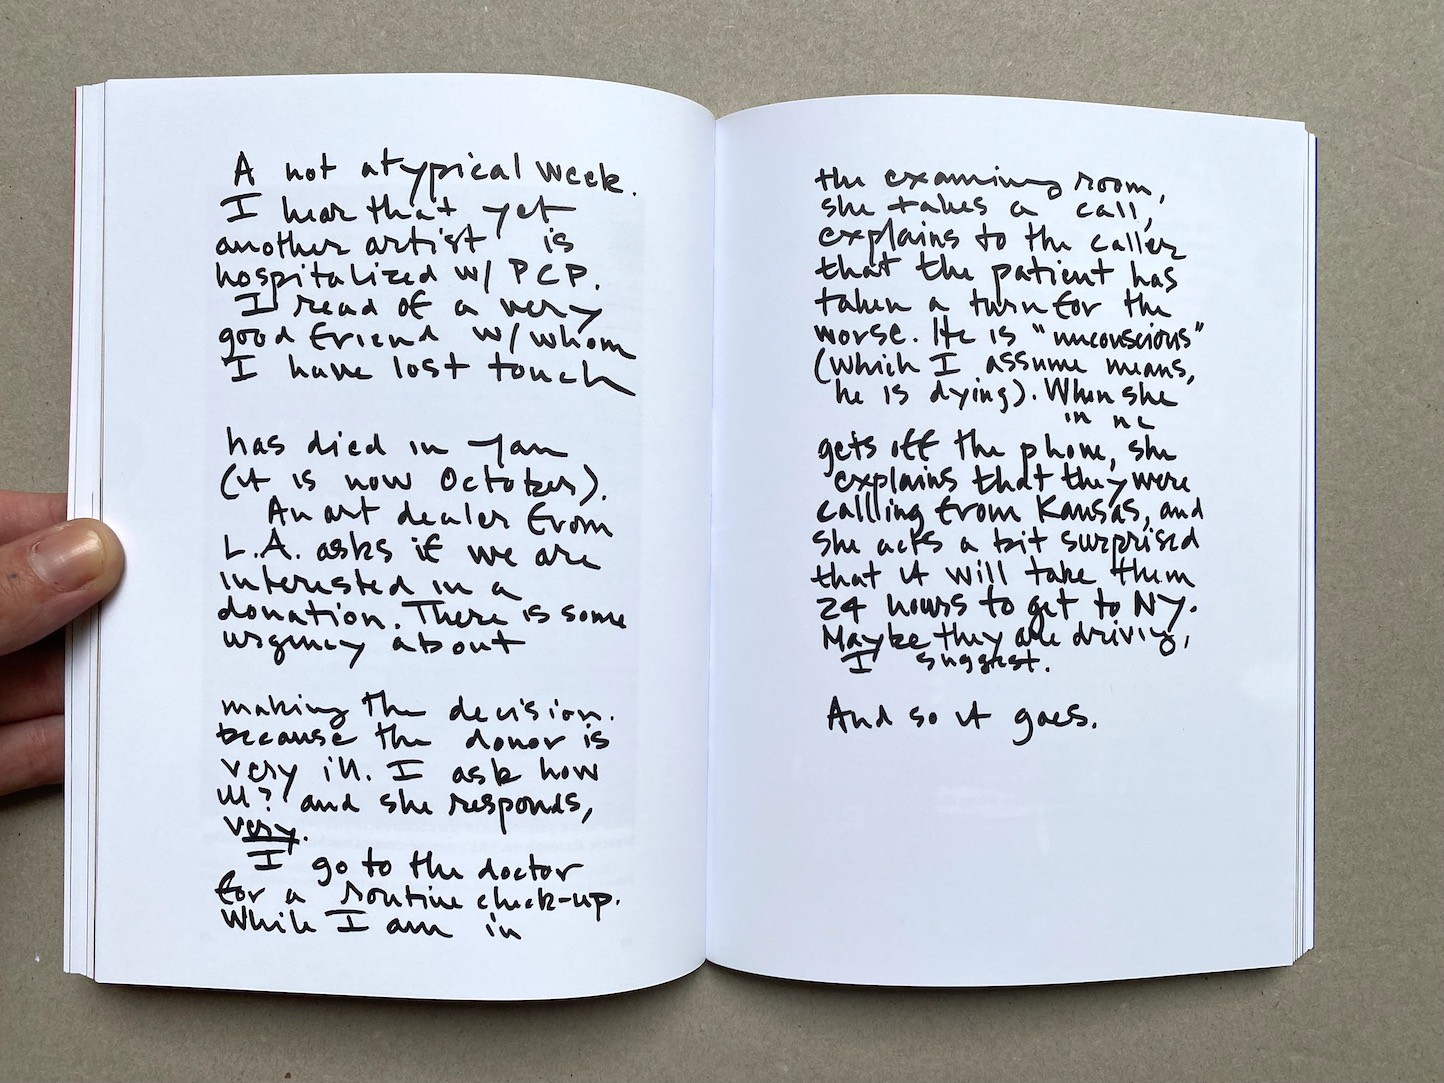 A not atypical week.
I hear that yet
another artist is
hospitalized w/ PCP.
I read of a very
good friend w/ whom
I have lost touch
has died in Jan
(it is now October).
An art dealer from
L.A. asks if we are
interested in a
donation. There is some
urgency about
making the decision.
because the donor is
very ill. I ask how
ill? and she responds,
very.
I go to the doctor
for a routine check-up.
While I am in
the examining room,
she takes a call,
explains to the caller
that the patient has
taken a turn for the
worse. He is "unconscious"
(which I assume means,
he is dying). When she
in
gets off the phone, she
explains that they were
calling from Kansas, and
she acts a bit surprised
that it will take them
24 hours to get to NY.
Maybe they are driving,
I suggest.
And so it goes.